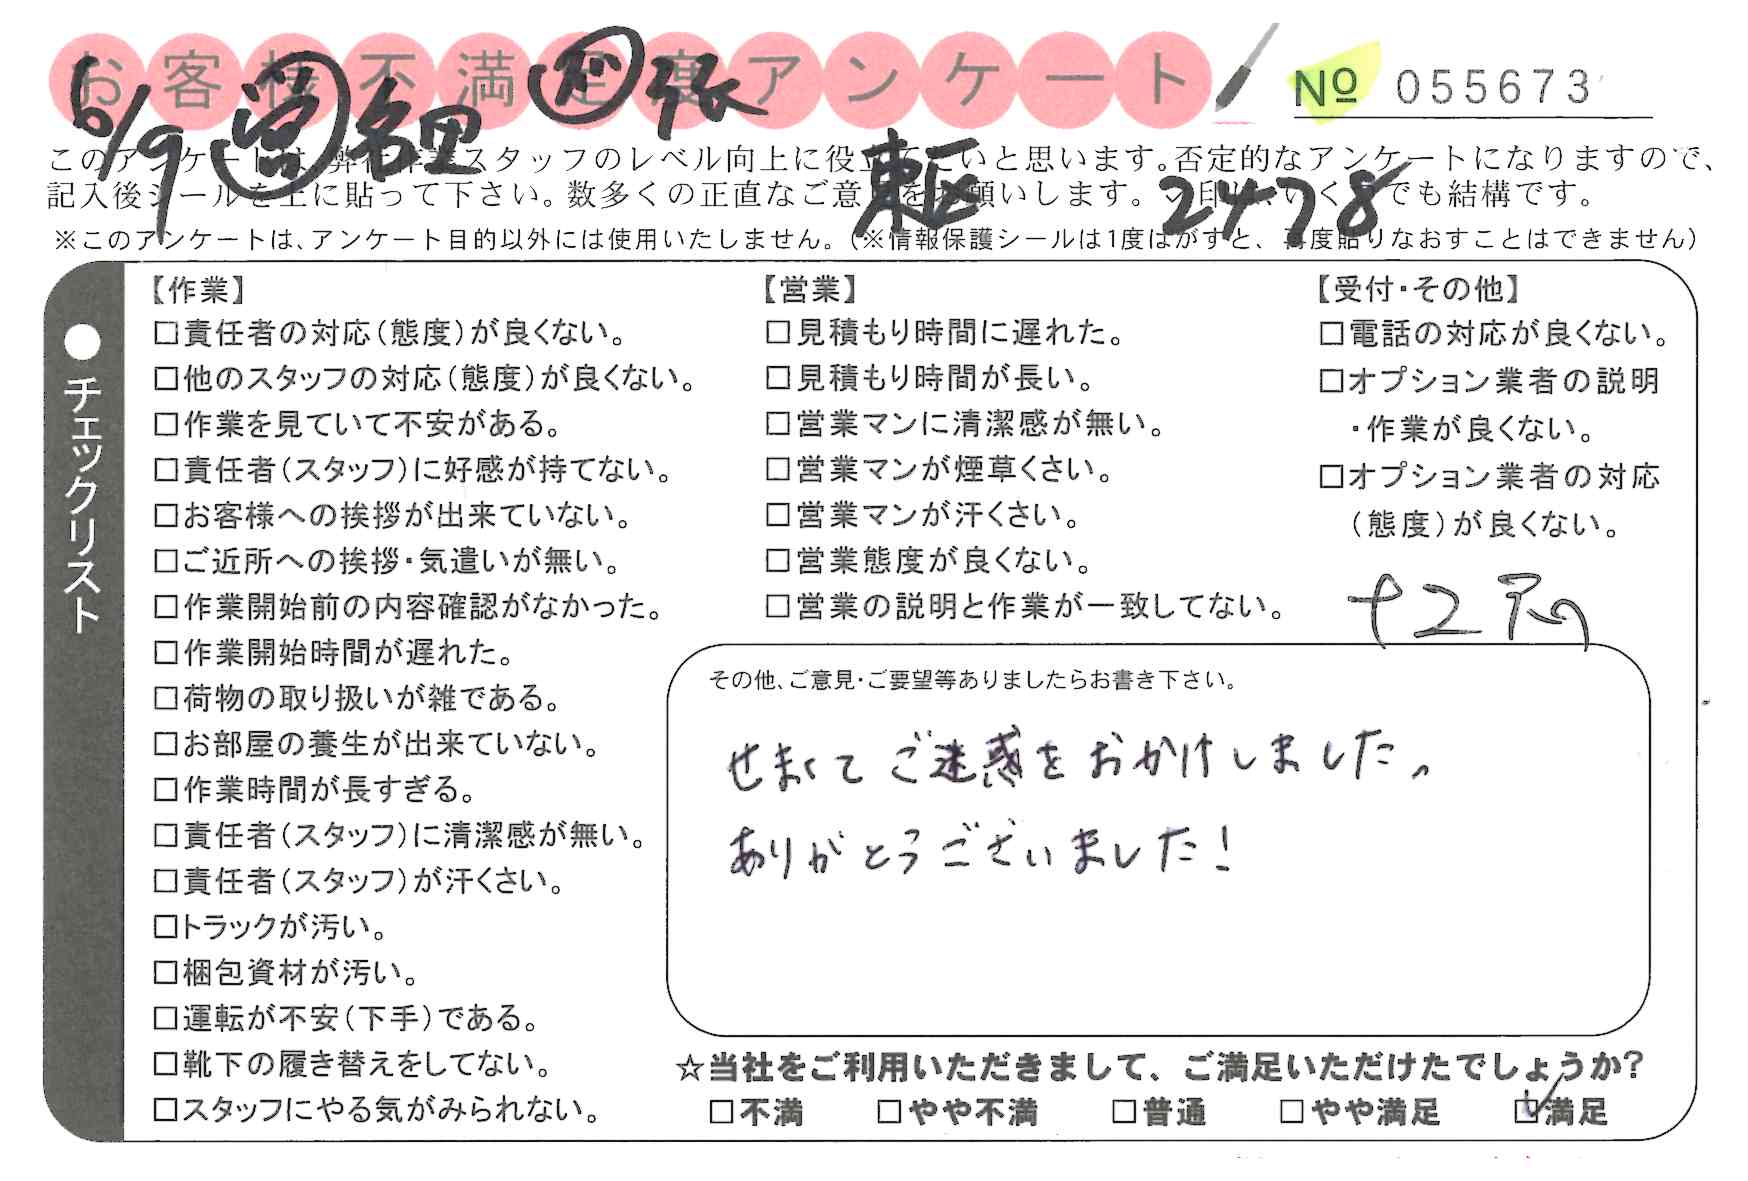 お客様不満足度アンケート
№ 055673
6/9
張
東区
2478
このアンケートは、弊社作業スタッフのレベル向上に役立てたいと思います。否定的なアンケートになりますので、
記入後シールを上に貼って下さい。数多くの正直なご意見をお願いします。✓印は、いくつでも結構です。
※このアンケートは、アンケート目的以外には使用いたしません。(※情報保護シールは1度はがすと、再度貼りなおすことはできません)
●チェックリスト
【作業】
□責任者の対応(態度)が良くない。
□他のスタッフの対応(態度)が良くない。
□作業を見ていて不安がある。
□責任者(スタッフ)に好感が持てない。
□お客様への挨拶が出来ていない。
□ご近所への挨拶・気遣いが無い。
□作業開始前の内容確認がなかった。
□作業開始時間が遅れた。
□荷物の取り扱いが雑である。
□お部屋の養生が出来ていない。
□作業時間が長すぎる。
□責任者(スタッフ)に清潔感が無い。
□責任者(スタッフ)が汗くさい。
□トラックが汚い。
□梱包資材が汚い。
□運転が不安(下手)である。
□靴下の履き替えをしてない。
□スタッフにやる気がみられない。
【営業】
□見積もり時間に遅れた。
□見積もり時間が長い。
□営業マンに清潔感が無い。
□営業マンが煙草くさい。
□営業マンが汗くさい。
□営業態度が良くない。
□営業の説明と作業が一致してない。
【受付・その他】
□電話の対応が良くない。
□オプション業者の説明
・作業が良くない。
□オプション業者の対応
(態度)が良くない。
+2
その他、ご意見・ご要望等ありましたらお書き下さい。
せまくてご迷惑をおかけしました。
ありがとうございました!
☆当社をご利用いただきまして、ご満足いただけたでしょうか?
□不満 □やや不満 □普通 □やや満足 ☑満足